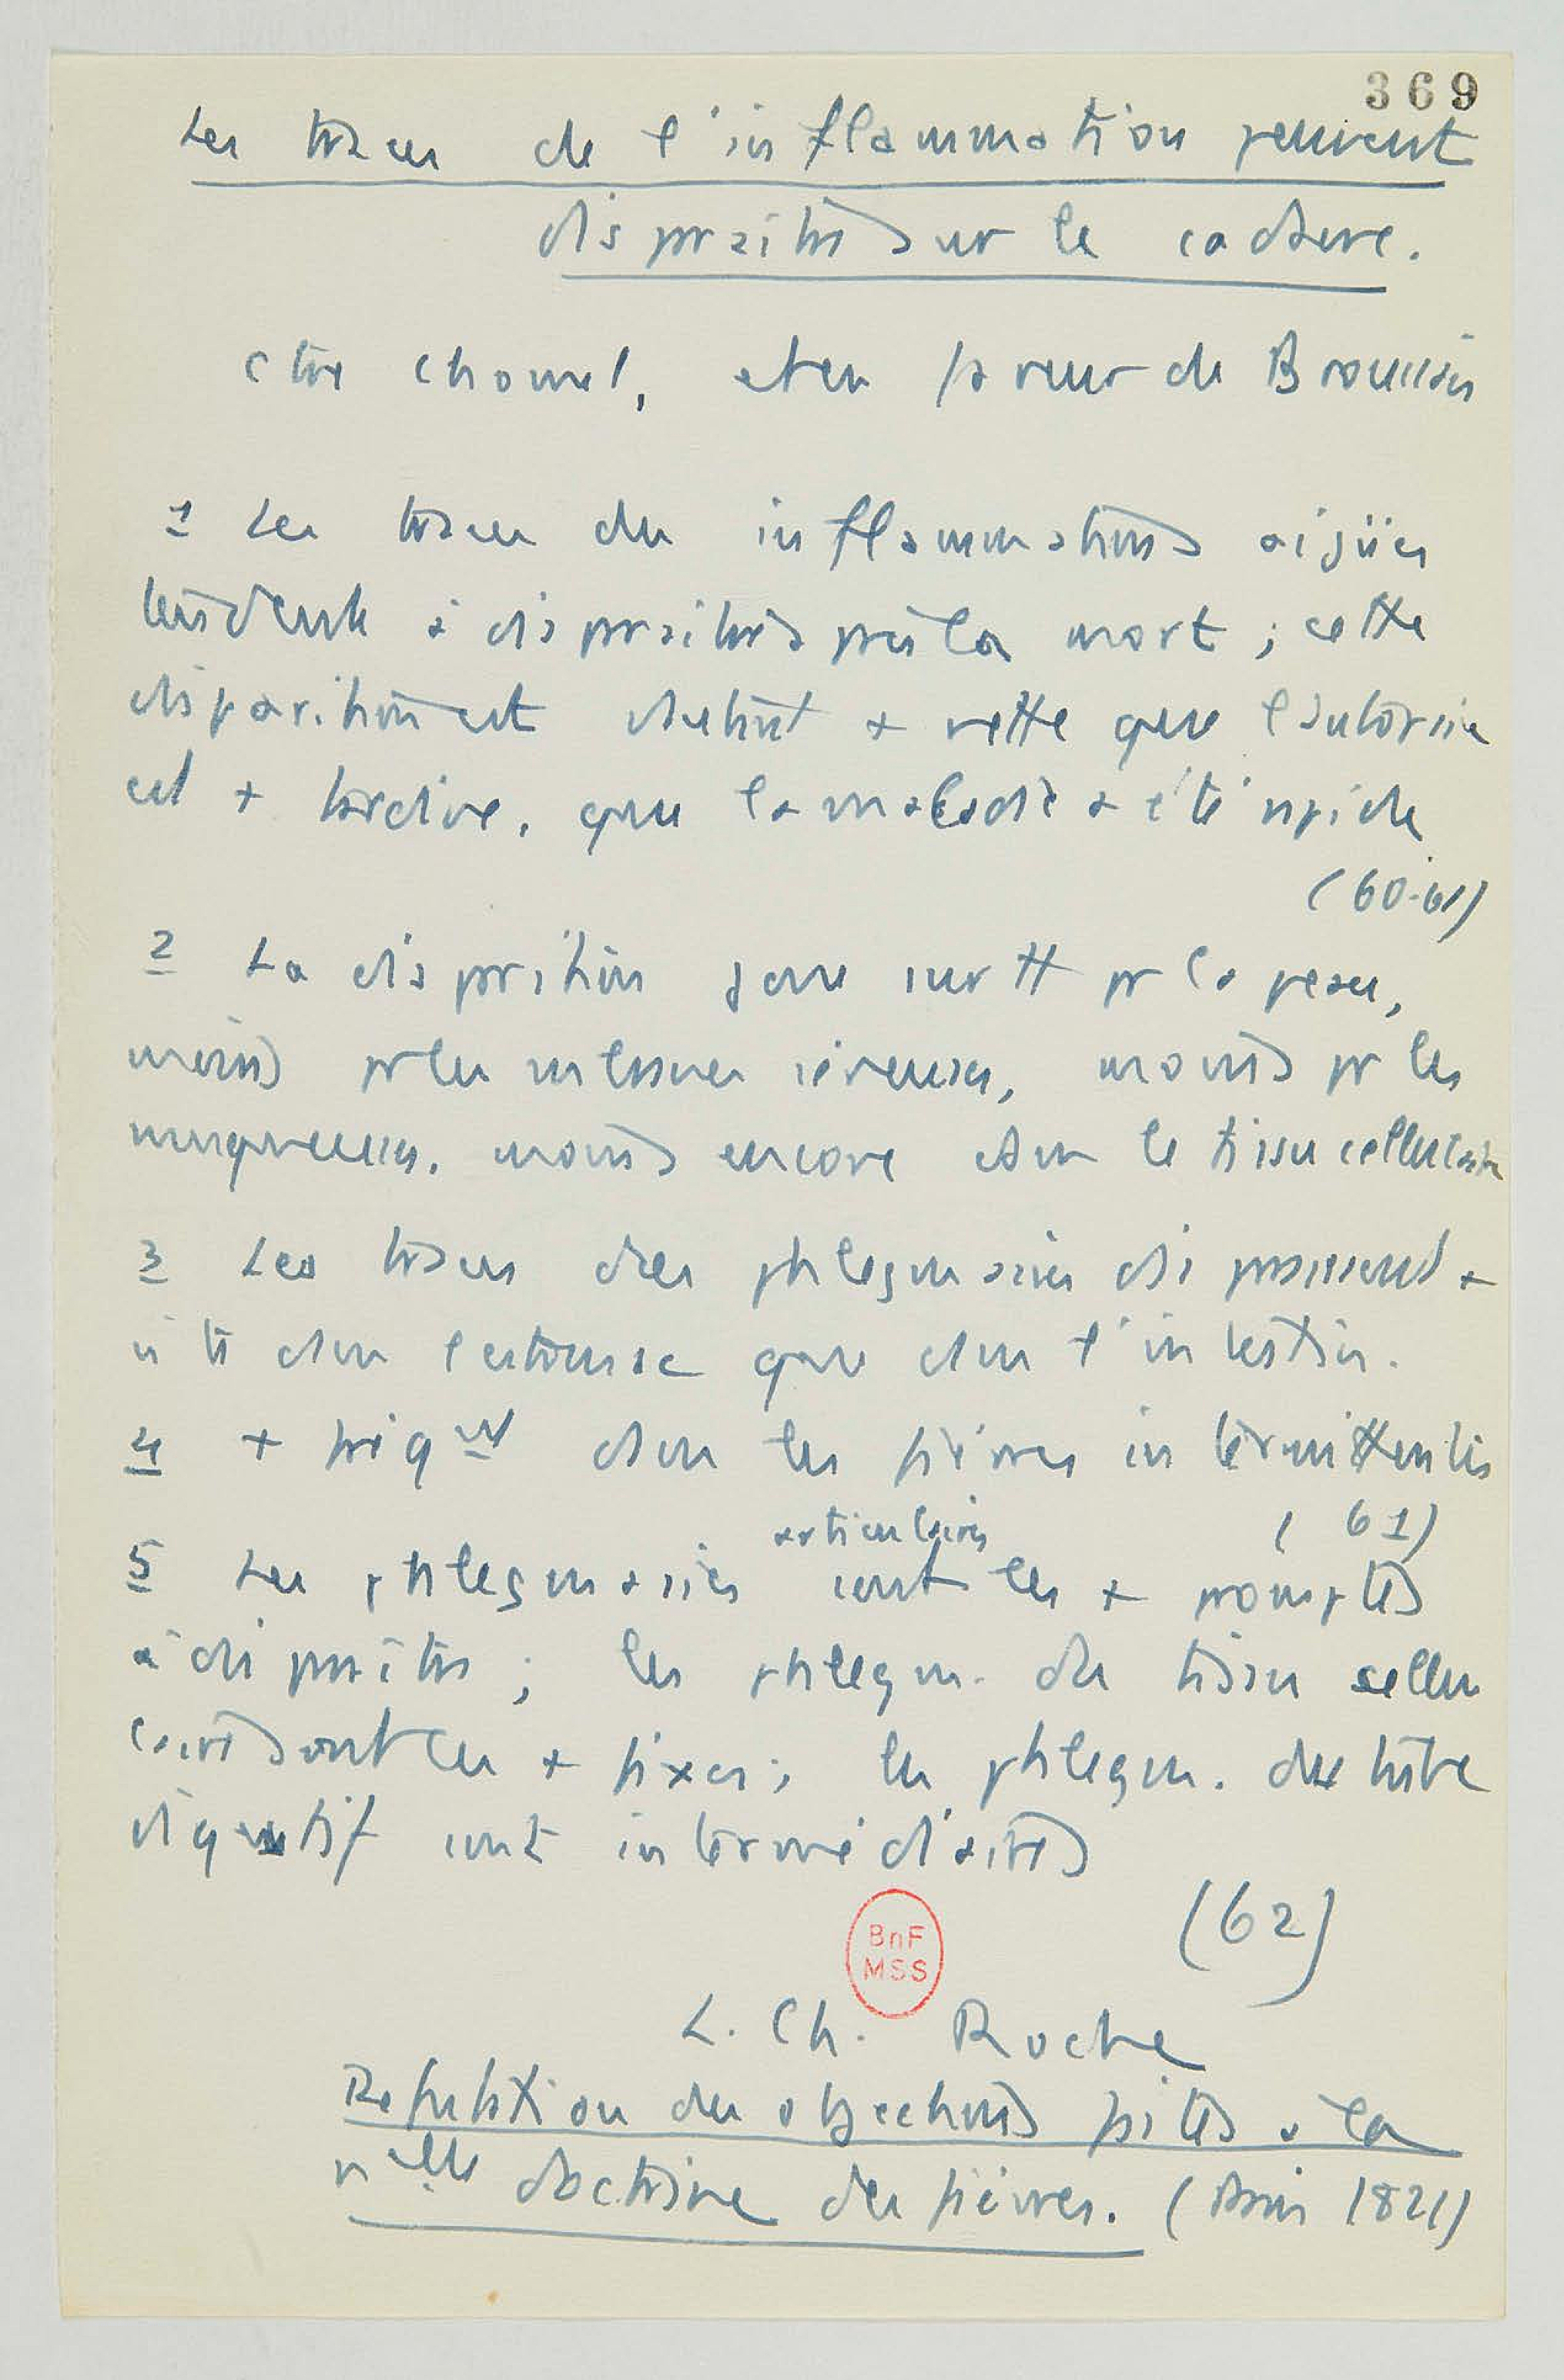 369
Les traces de l'inflammation peuvent
disparaître sur le cadavre.
Ctre Chomel, et en faveur de Broussais
1 Les traces des inflammations aigües
tendent à disparaître après la mort ; cette
disparition est d'autant + nette que l'autopsie
est + tardive, que la maladie a été rapide
(60-61)
2 La disparition joue surtt pr la peau,
moins pr les séreuses, moins pr les
muqueuses, moins encore dans le tissu cellulaire
3 Les traces des phlegmasies disparaissent +
vite dans l'estomac que dans l'intestin.
4 + fréqnt dans les fièvres intermittentes
(61)
5 Les phlegmasies articulaires sont les + promptes
à disparaître ; les phlegm. du tissu cellu
laire sont les + fixes ; les phlegm. du tube
digestif sont intermédiaires
(62)
BnF
MSS
L. Ch. Roche
Refutation des objections faites à la
nelle doctrine des fièvres. (Paris 1821)